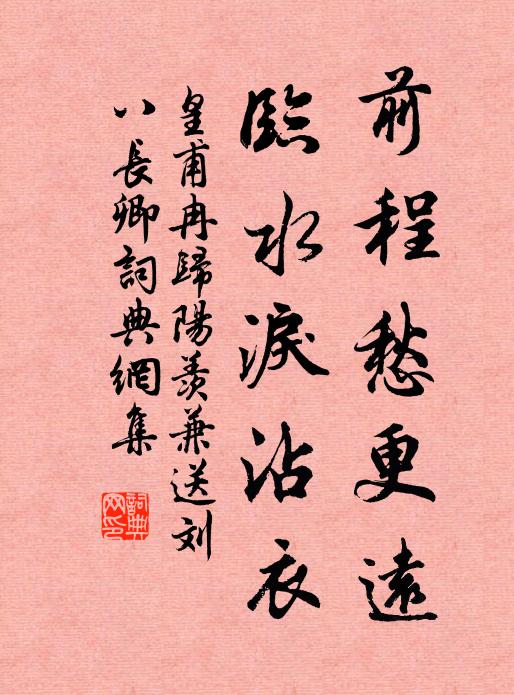 前程愁更遠
臨水淚沾衣
皇甫冉歸陽羨兼送刘
八長卿詞典網集
詞典網印